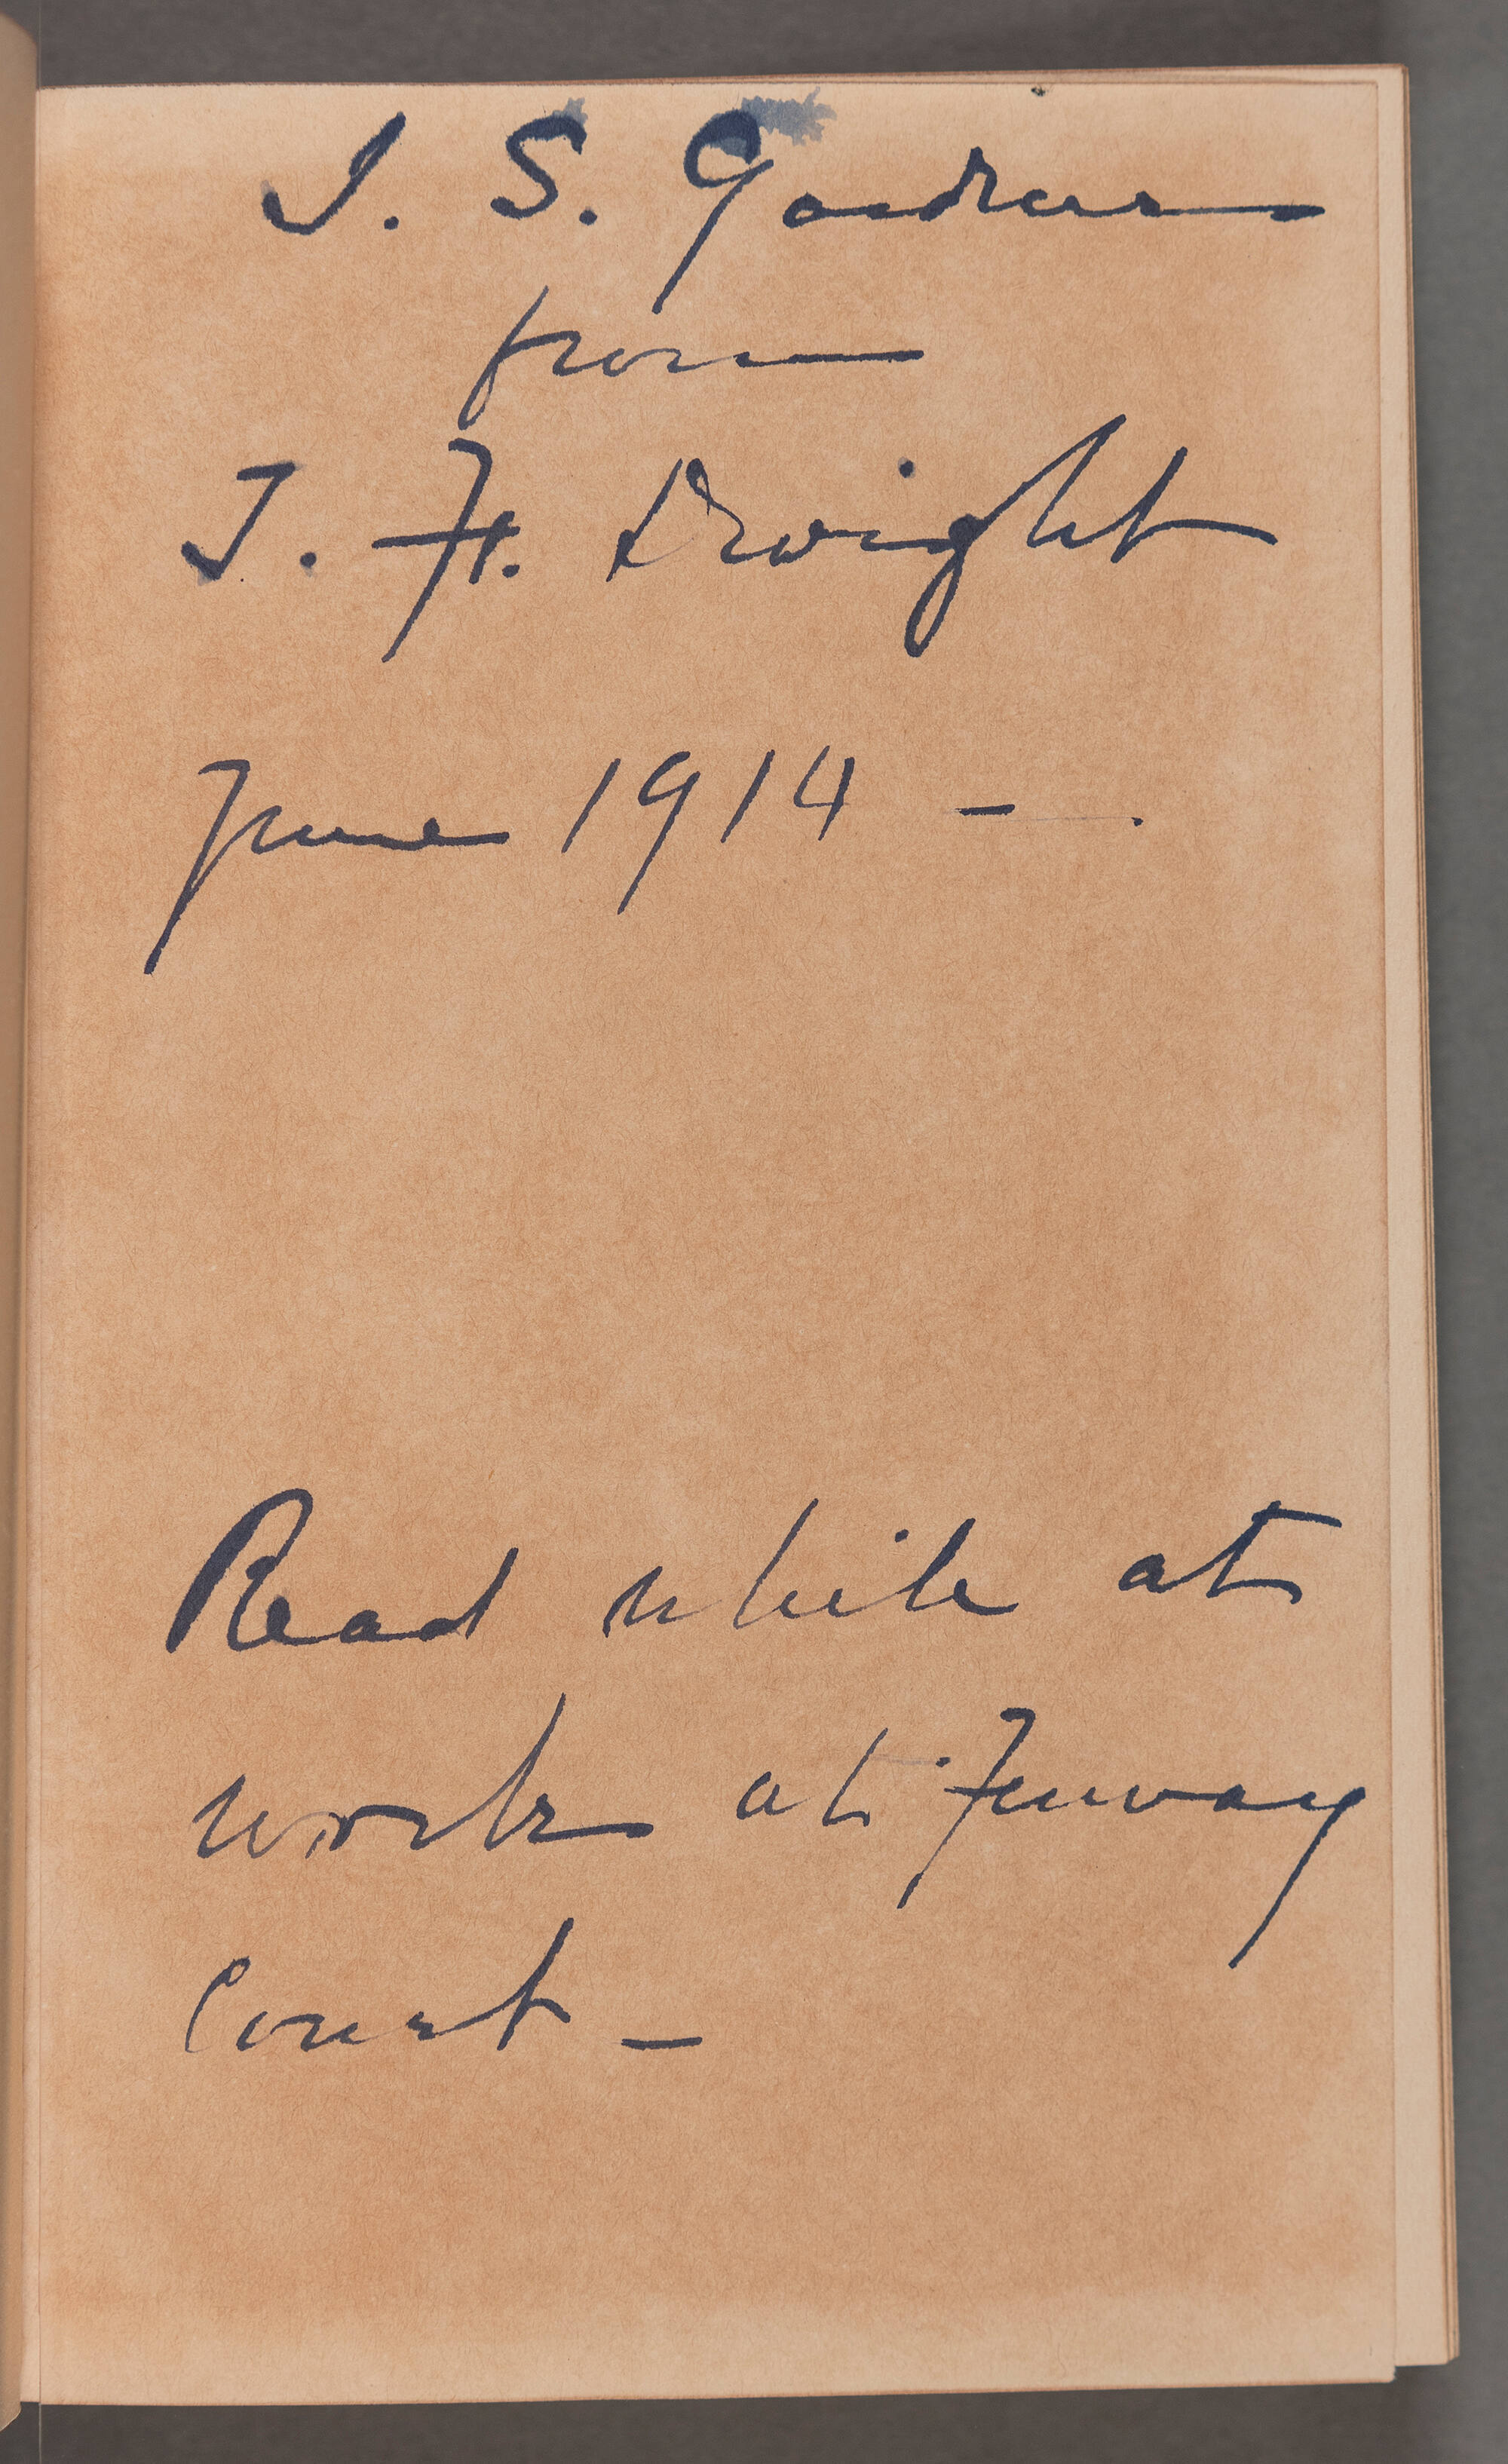 I. S. Gardner
from
T. F. Dwight
June 1914 -
Read while at
work at Fenway
Court -